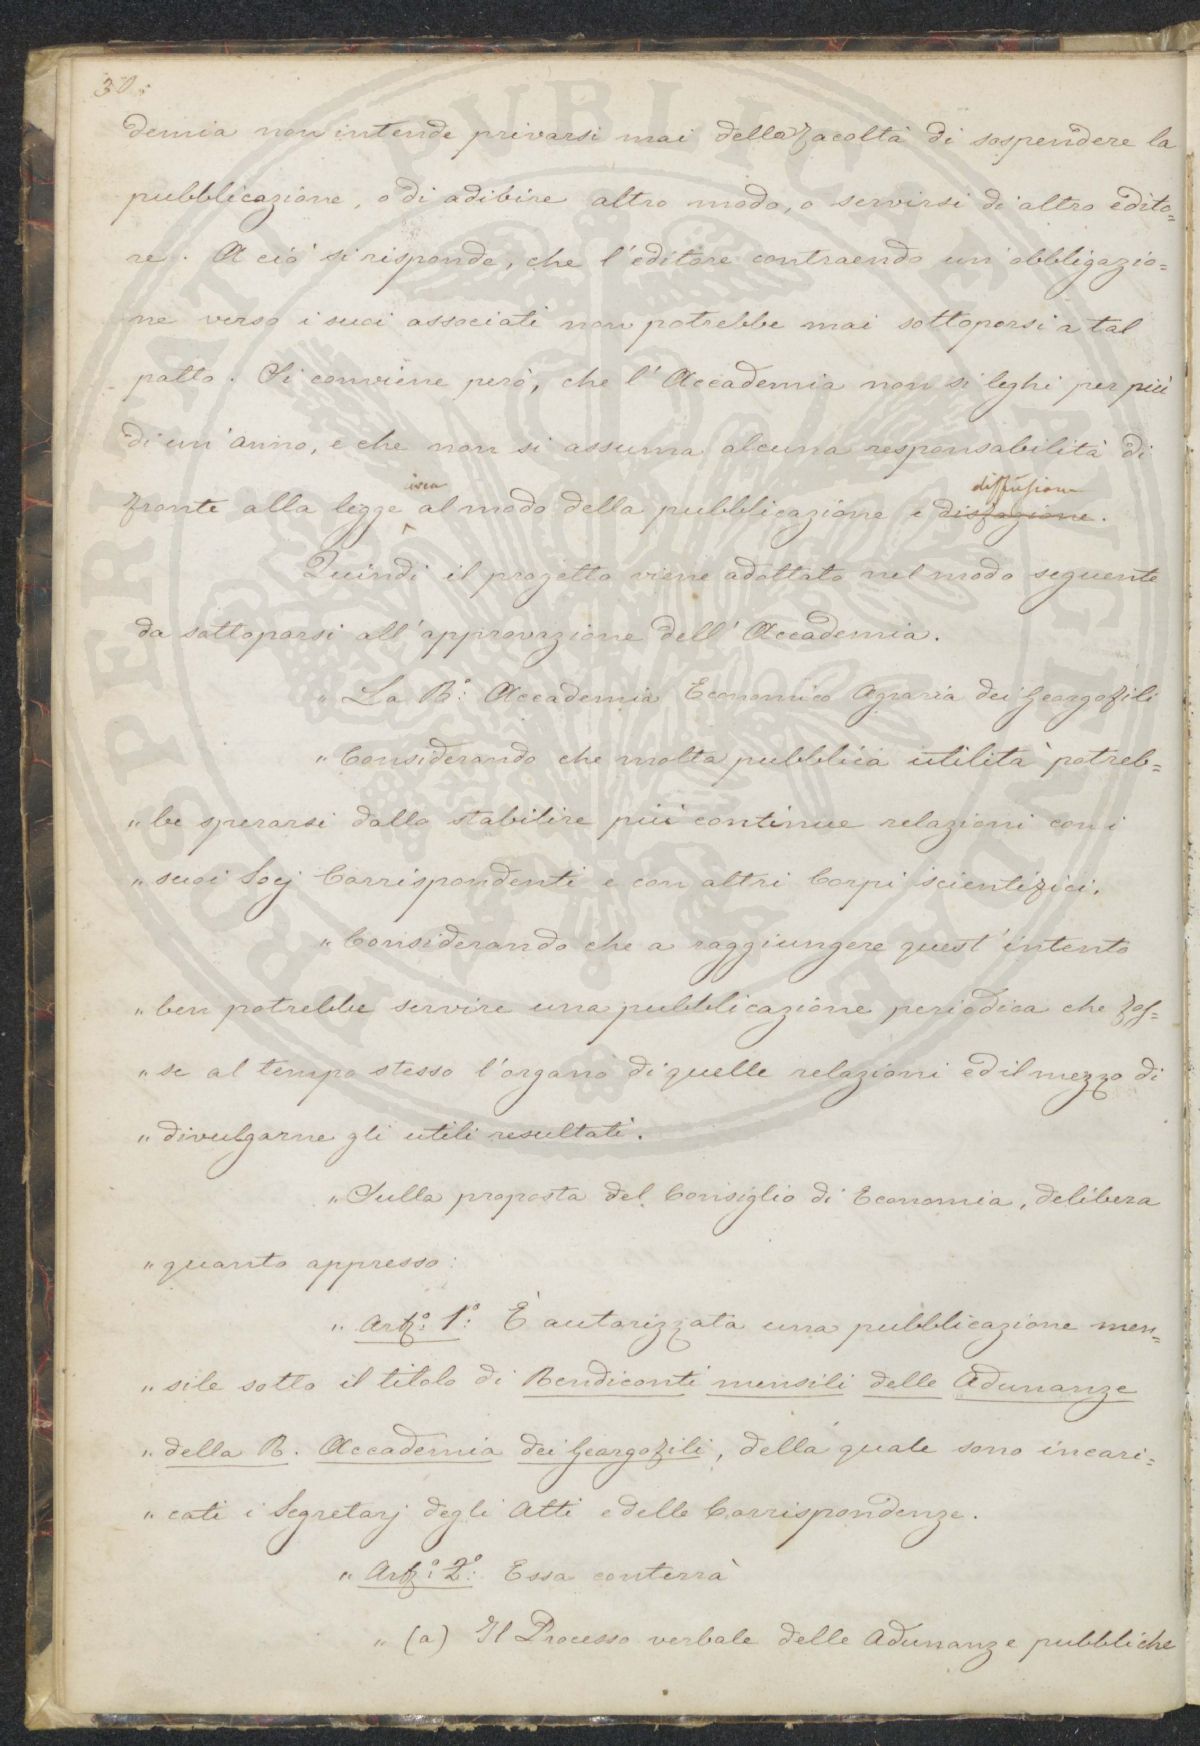 30:
demia non intende privarsi mai della facoltà di sospendere la
pubblicazione, o di adibire altro modo, o servirsi di altro edito=
re. A ciò si risponde, che l'editore contraendo un'obbligazio=
ne verso i suoi associati non potrebbe mai sottoporsi a tal
patto. Si conviene però, che l'Accademia non si leghi per più
di un'anno, e che non si assuma alcuna responsabilità di
diffusione
fronte alla legge al modo della pubblicazione e disfazione.
Quindi il progetto viene adottato nel modo seguente
da sottoporsi all'approvazione dell'Accademia.
" La R.: Accademia Economico Agraria dei Georgofili
" Considerando che molta pubblica utilità potreb=
" be sperarsi dallo stabilire più continue relazioni con i
" suoi Socj Corrispondenti e con altri Corpi scientifici.
" Considerando che a raggiungere quest'intento
" ben potrebbe servire una pubblicazione periodica che fos=
" se al tempo stesso l'organo di quelle relazioni ed il mezzo di
" divulgarne gli utili resultati.
" Sulla proposta del Consiglio di Economia, delibera
" quanto appresso:
" Art.º: 1º: È autorizzata una pubblicazione men=
" sile sotto il titolo di Rendiconti mensili delle Adunanze
" della R. Accademia dei Georgofili, della quale sono incari=
" cati i Segretarj degli Atti e delle Corrispondenze.
" Art.º: 2º: Essa conterrà
" (a) Il Processo verbale delle Adunanze pubbliche
PROSPERITATI PUBLICAE AUGENDAE